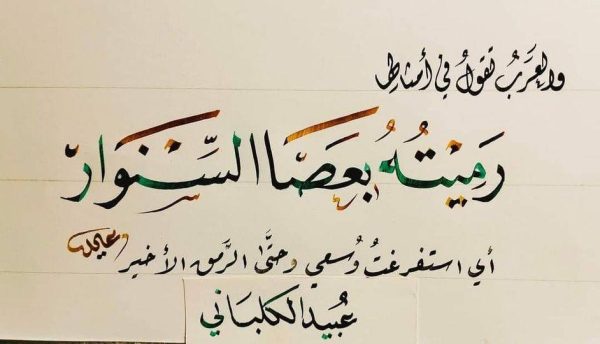 والعَرَبُ تقولُ في أمثالها
رَمِيْتُهُ بعَصَا السِّنْوَارْ
أي استفرغتُ وُسعي وحتَّى الرَّمق الأخير
عُبيد الكلبَاني